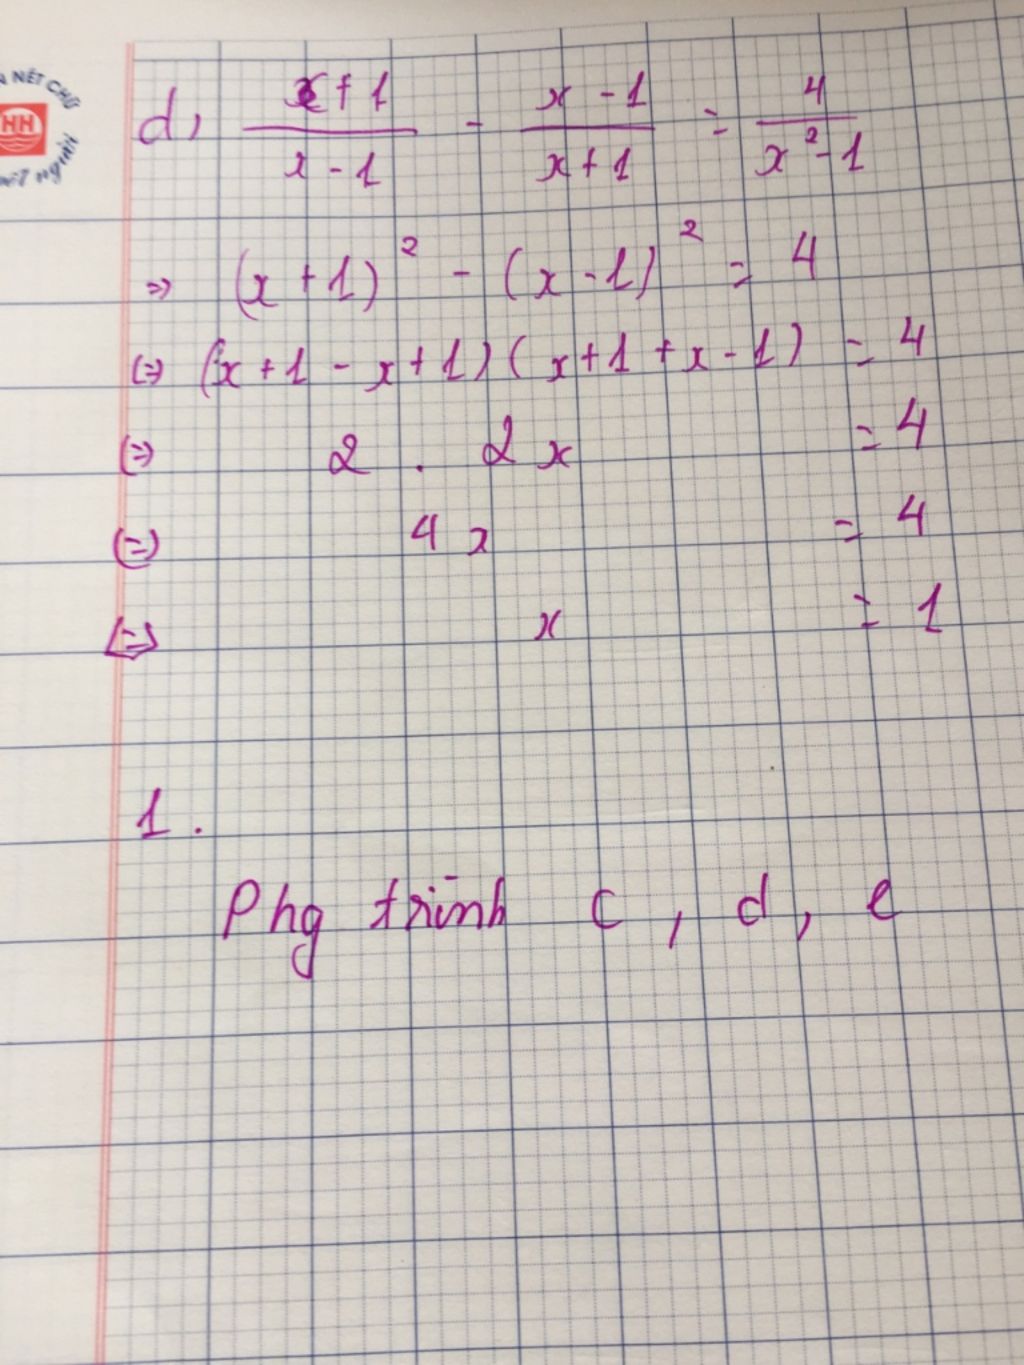 NÉT CHỮ
HH
d, \frac{x+1}{x-1} - \frac{x-1}{x+1} = \frac{4}{x^2-1}
=> (x+1)^2 - (x-1)^2 = 4
(=) (x+1-x+1)(x+1+x-1) = 4
(=) 2 . 2x = 4
(=) 4x = 4
(=) x = 1
1.
Phg trình c, d, e